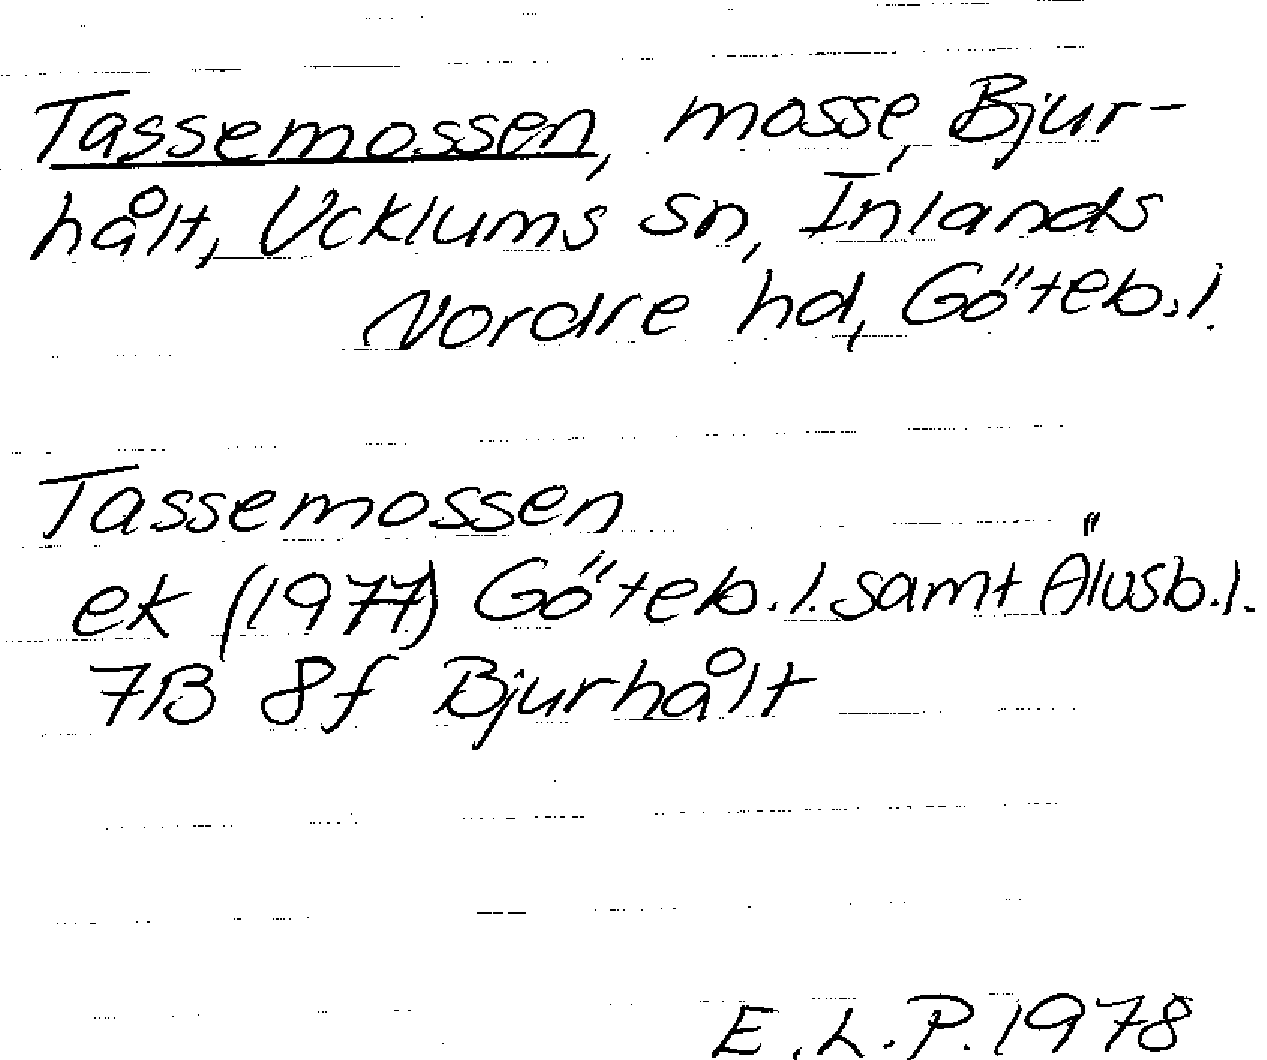 Tassemossen, mosse, Bjur-
hålt, Ucklums sn, Inlands
Nordre hd, Göteb.l.
Tassemossen
ek (1977) Göteb.l. samt Älvsb.l.
7B 8f Bjurhålt
E.L.P. 1978